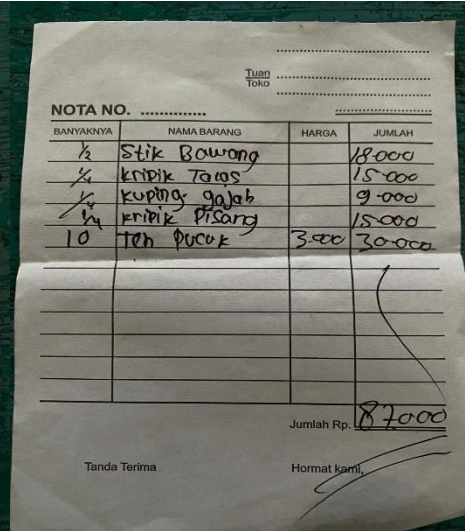 Tuan
Toko
NOTA NO. ..............
BANYAKNYA NAMA BARANG HARGA JUMLAH
1/2 Stik Bawang 18.000
1/4 kripik Talas 15.000
1/4 kuping gajah 9.000
1/4 kripik Pisang 15.000
10 Teh Pucuk 3.000 30.000
Jumlah Rp. 87.000
Tanda Terima Hormat kami,